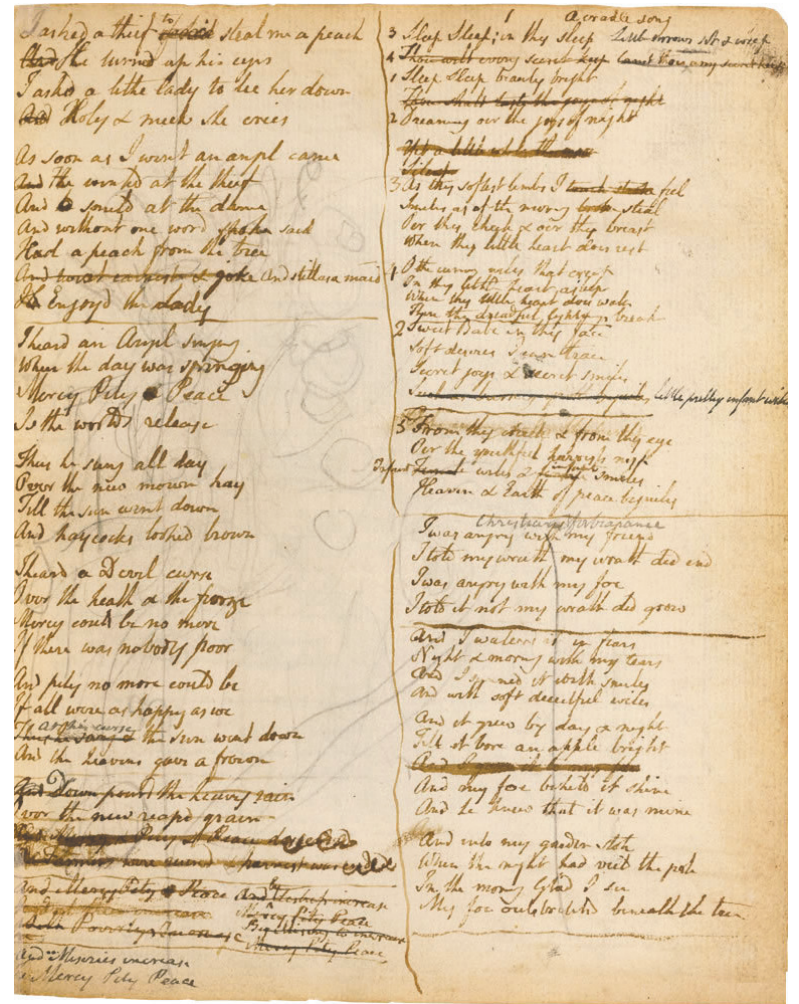 I asked a thief to steal me a peach
And He turned up his eyes
I askd a lithe lady to lie her down
And Holy & meek she cries
As soon as I went an angel came
And He winkd at the thief
And smild at the dame
And without one word spoke said
Had a peach from the tree
And twixt earnest & joke And still as a maid
Enjoyd the lady
I heard an Angel singing
When the day was springing
Mercy Pity Peace
Is the worlds release
Thus he sung all day
Over the new mown hay
Till the sun went down
And haycocks looked brown
I heard a Devil curse
Over the heath & the furze
Mercy could be no more
If there was nobody poor
And pity no more could be
If all were as happy as we
At his curse
Thus he sang & the sun went down
And the heavens gave a frown
And Down pourd the heavy rain
Over the new reapd grain
And Mercy & Pity & Peace descended
The Farmers were ruind & harvest was ended
And Mercy Pity Peace And by distress increase
Mercy Pity Peace
Both Poverty & Increase By Misery to increase
Mercy Pity Peace
And Miseries increase
Mercy Pity Peace
1 A cradle song
3 Sleep Sleep; in thy sleep Little sorrows sit & weep
4 Thou wilt every secret keep Canst thou any secret keep
1 Sleep Sleep beauty bright
Thou shalt taste the joys of night
2 Dreaming oer the joys of night
Yet a little while the moon
Silent
3 As thy softest limbs I touch stroke feel
Smiles as of the morning broke steal
Oer thy cheek & oer thy breast
Where thy little heart does rest
4 O the cunning wiles that creep
In thy little heart asleep
When thy little heart does wake
Then the dreadful lightnings break
2 Sweet Babe in thy face
Soft desires I can trace
Secret joys & secret smiles
Such as burning youth beguiles little pretty infant wiles
5 From thy cheek & from thy eye
Oer the youthful harvests nigh
Infant Female wiles & infant smiles
Heaven & Earth of peace beguiles
Christian Forbearance
I was angry with my friend
I told my wrath my wrath did end
I was angry with my foe
I told it not my wrath did grow
And I waterd it in fears
Night & morning with my tears
And I sunned it with smiles
And with soft deceitful wiles
And it grew by day & night
Till it bore an apple bright
And my foe beheld it shine
And he knew that it was mine
And into my garden stole
When the night had veild the pole
In the morning Glad I see
My foe outstretchd beneath the tree